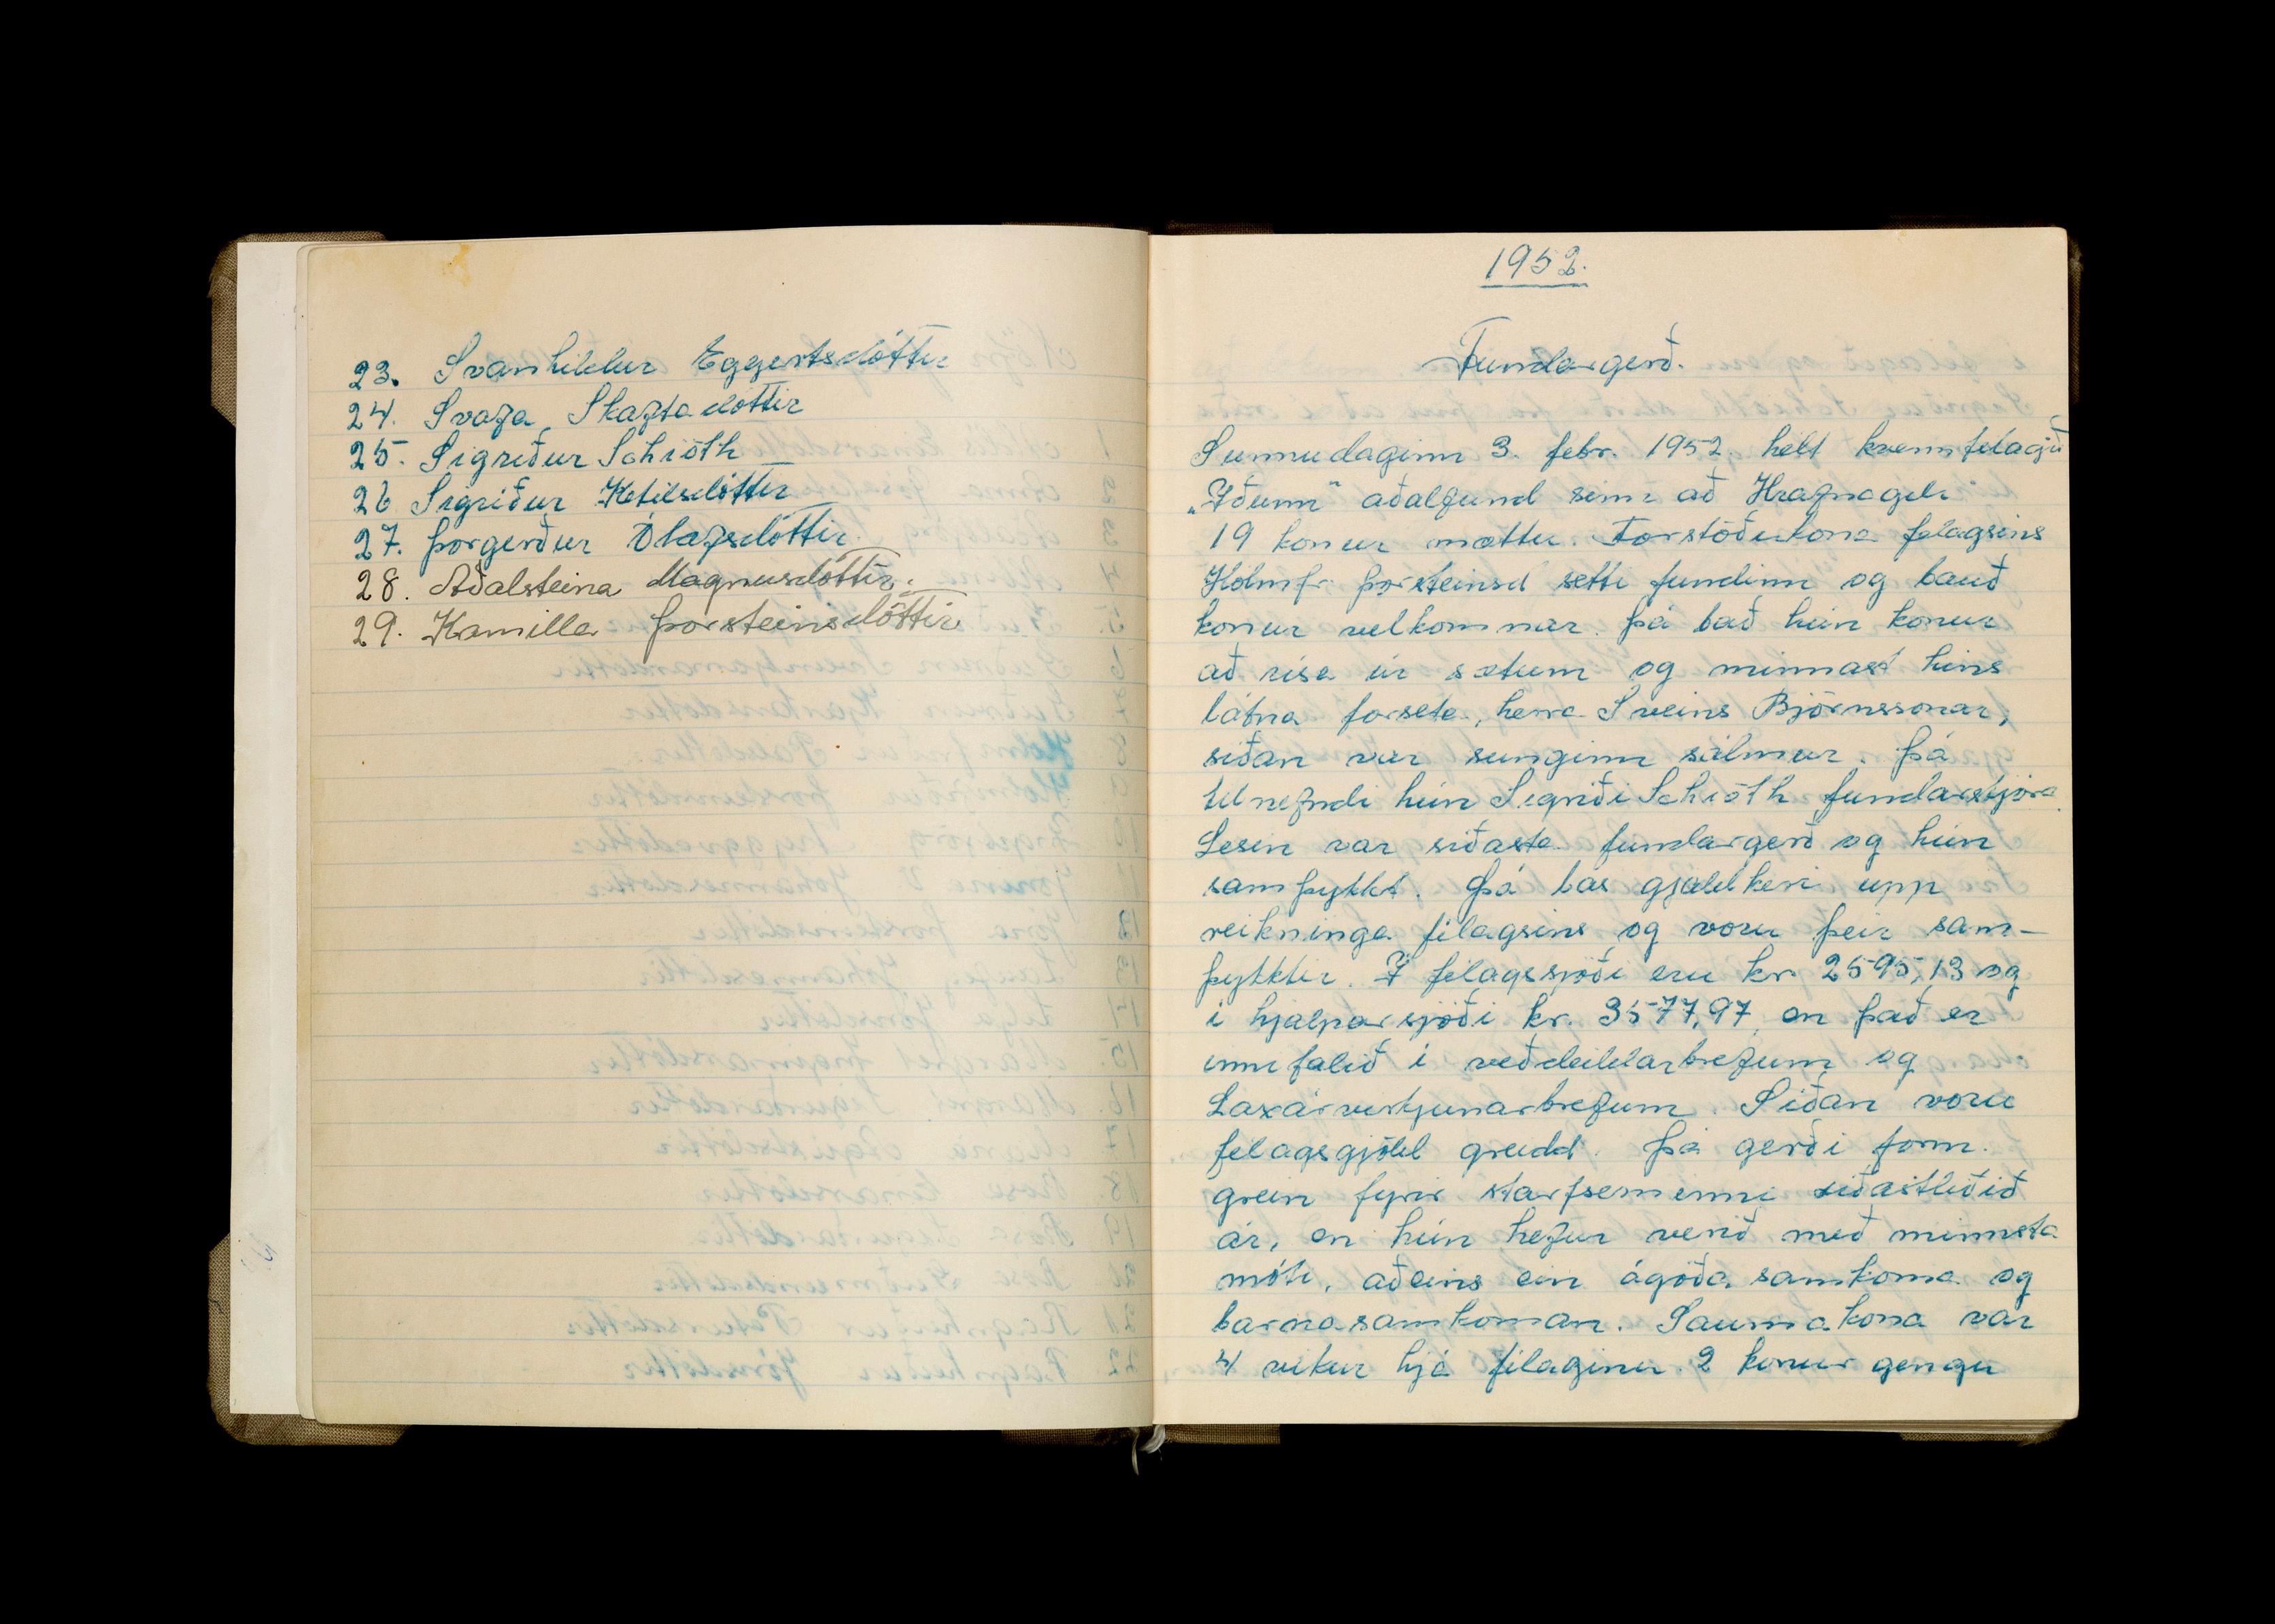 23. Svanhildur Eggertsdóttir
24. Svafa Skaftadóttir
25. Sigriður Schiöth
26 Sigriður Ketilsdóttir
27. Þorgerður Ólafsdóttir.
28. Aðalsteina Magnusdóttir.
29. Kamilla Þorsteinsdóttir
1952.
Fundargerð.
Sunnudaginn 3. febr. 1952. helt kvennfelagið
„Iðunn" aðalfund sinn að Hrafnagili
19 konur mættu. Forstöðukona felagsins
Hólmfr. Þorsteinsd setti fundinn og bauð
konur velkomnar. Þá bað hún konur
að rísa úr sætum og minnast hins
látna forseta, herra Sveins Björnssonar,
síðan var sunginn sálmur. Þá
tilnefndi hún Sigriði Schiöth fundarstjóra.
Lesin var síðasta fundargerð og hún
samþykkt. Þá las gjaldkeri upp
reikninga félagsins og voru þeir sam-
þykktir. Í félagssjóði eru kr. 2595,13 og
í hjalparsjóði kr. 3577,97 en það er
innfalið í veðdeildarbrefum og
Laxárvirkjunarbrefum. Síðan voru
félagsgjöld greidd. Þá gerði form.
grein fyrir starfseminni síðastliðið
ár, en hún hefur verið með minnsta
móti, aðeins ein ágóða samkoma og
barnasamkoman. Saumakona var
4 vikur hjá félaginu. 2 konur gengu